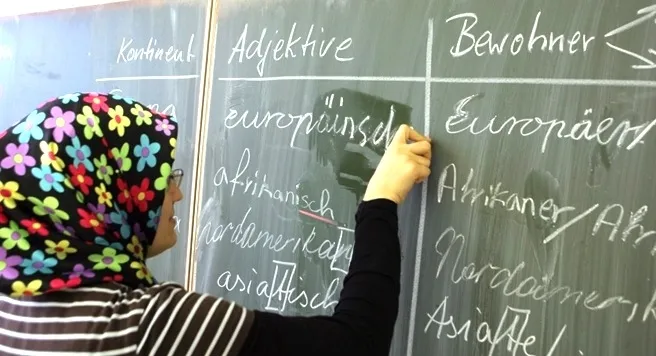 Kontinent Adjektive Bewohner
europäinsch Europäer/
afrikanisch Afrikaner/Afri
nordamerikan Nordamerik
asiatisch Asiate/